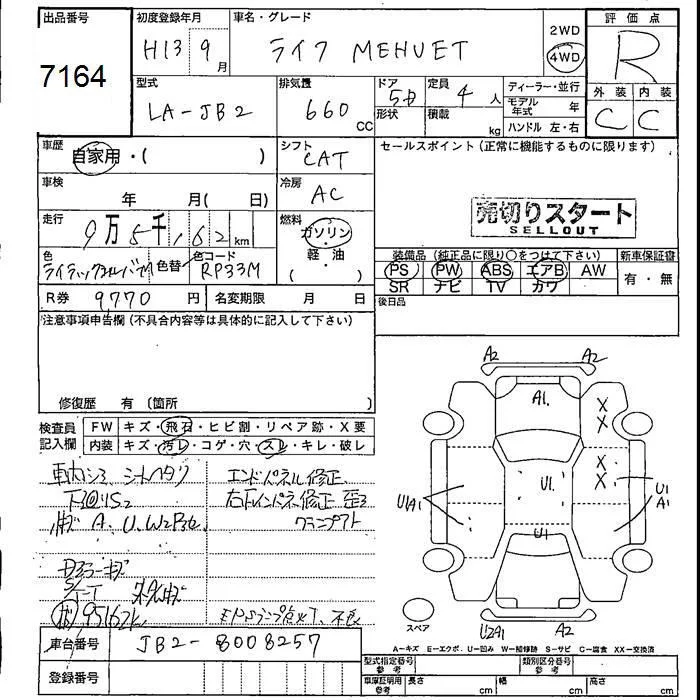 出品番号
7164
初度登録年月
H13 9月
車名・グレード
ライフ MEHUET
2WD
4WD
評価点
R
外装 内装
C C
型式
LA-JB2
排気量
660 CC
ドア
5D
形状
定員
4 人
積載
kg
ディーラー・並行
モデル年式 年
ハンドル 左・右
車歴
自家用・( )
シフト
CAT
セールスポイント(正常に機能するものに限ります)
車検
年 月( 日)
冷房
AC
売切りスタート
SELLOUT
走行
9万5千,162km
燃料
ガソリン・
軽・油
( )
色
色替
色コード
RP33M
装備品(純正品に限り○をつけて下さい)
PS PW ABS エアB AW
SR ナビ TV カワ
新車保証書
有・無
R券 9770 円
名変期限 月 日
後日品
注意事項申告欄(不具合内容等は具体的に記入して下さい)
修復歴 有〔箇所 〕
検査員
記入欄
FW キズ・飛石・ヒビ割・リペア跡・X要
内装 キズ・汚レ・コゲ・穴・スレ・キレ・破レ
エンドパネル修正
A、U、W2
95162K
車台番号 JB2-8008257
登録番号
A2 A2
A1
X
X
X
X
U1
U1
U1A1
U1
A1
スペア
A2
A-キズ E-エクボ U-凹み W-補修跡 S-サビ C-腐食 XX-交換済
型式指定番号
参考
類別区分番号
参考
車庫証明用
参考
長さ cm
幅 cm
高さ cm